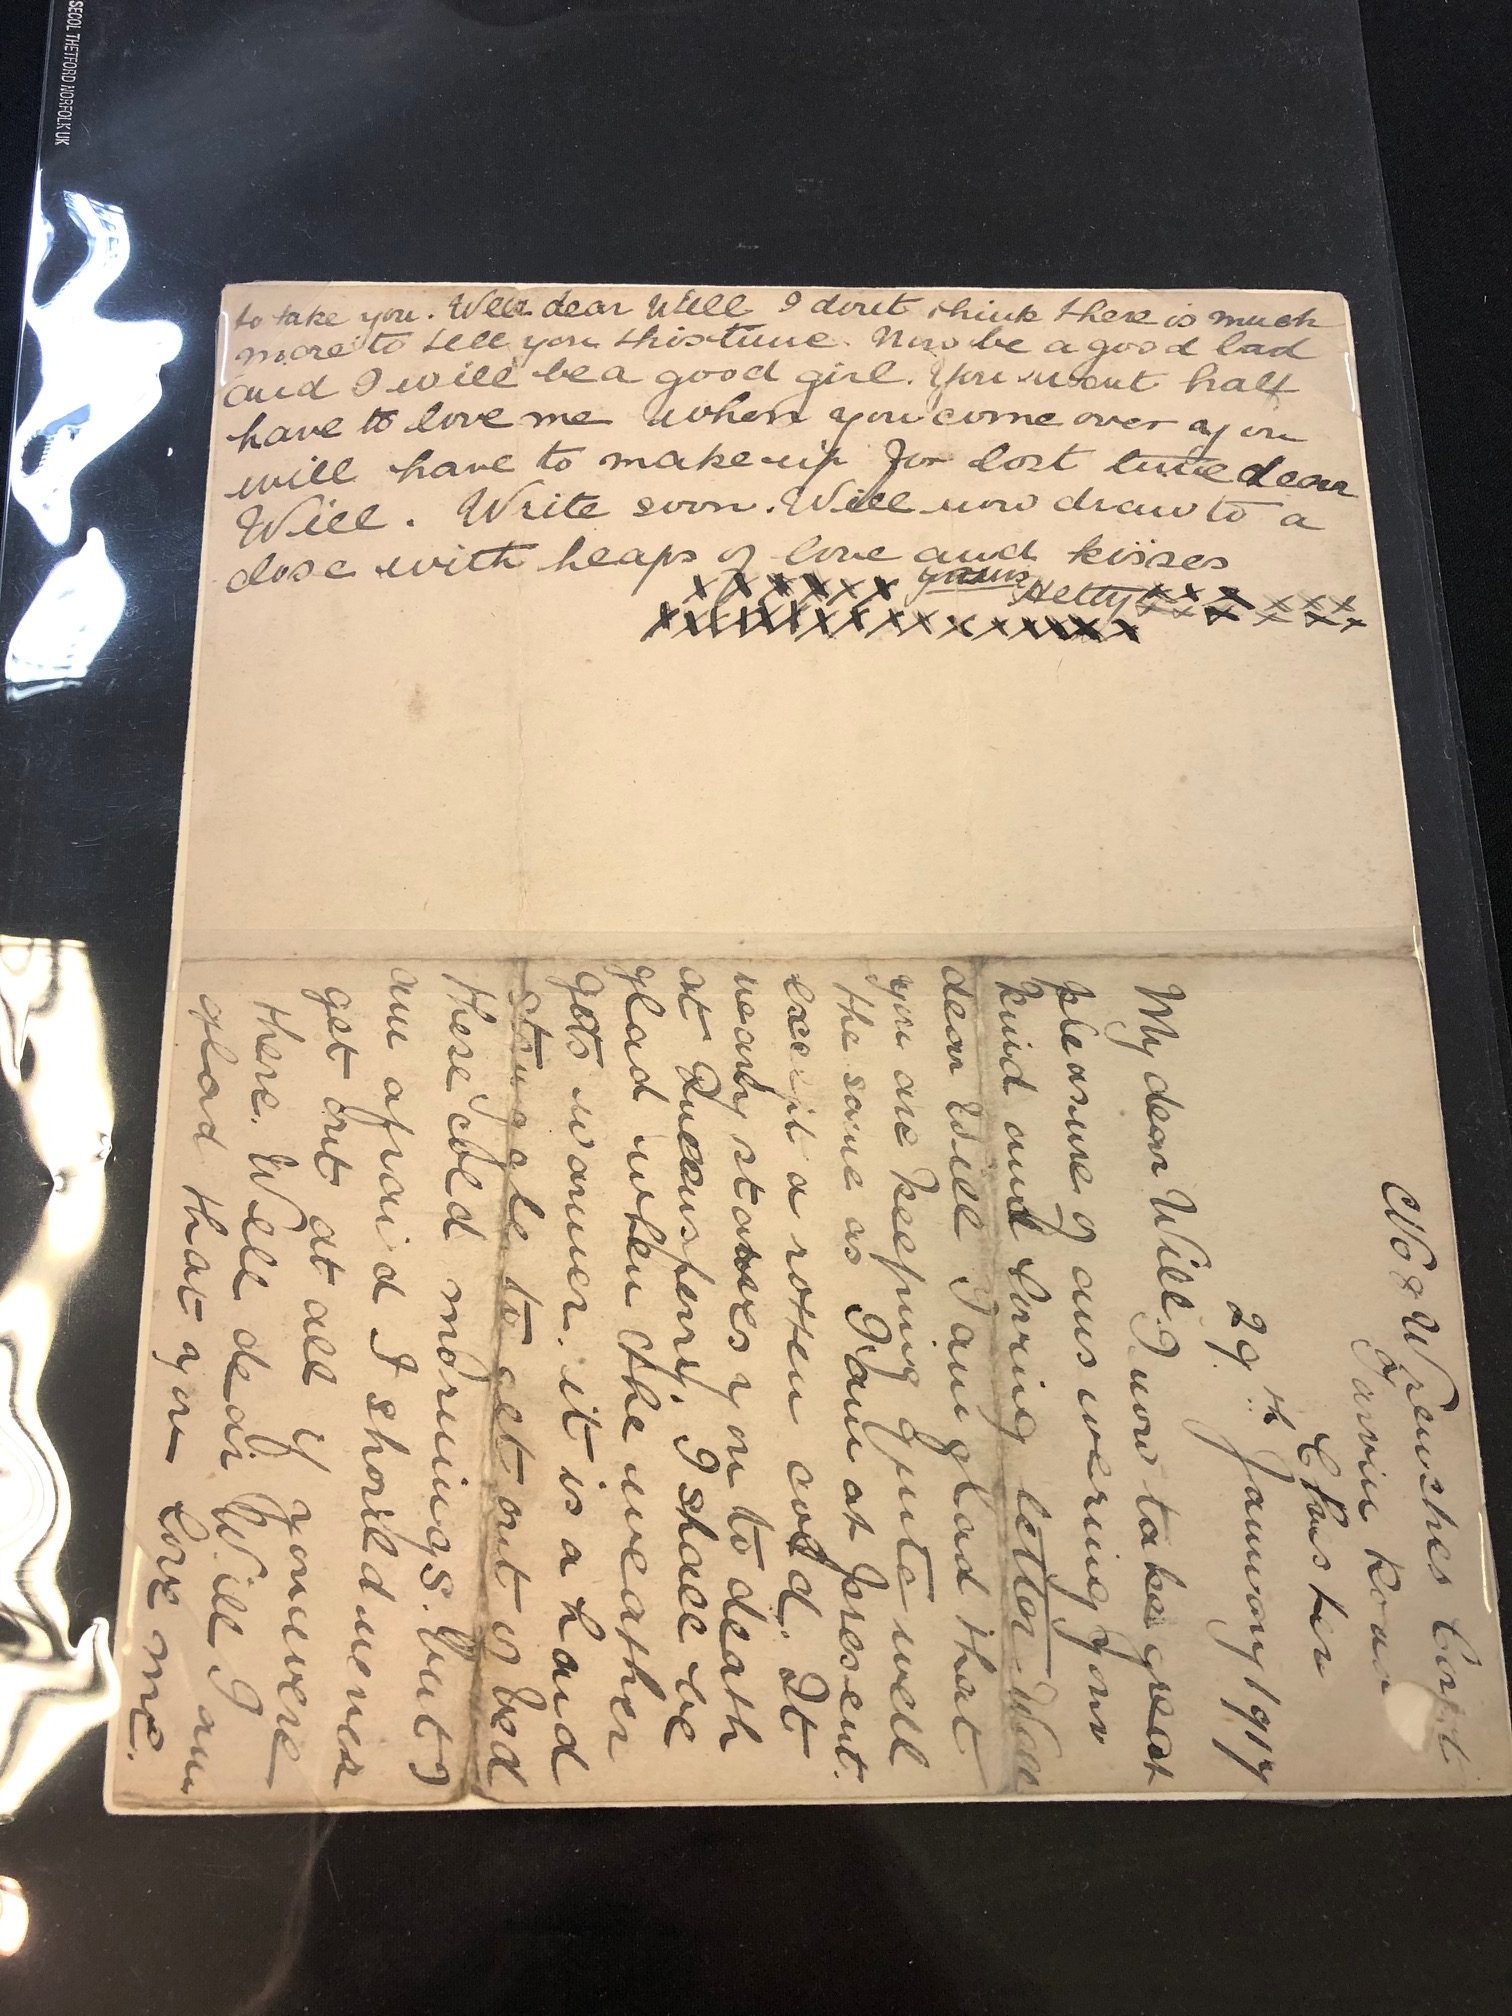 SECOL THETFORD NORFOLK UK
to take you. Well dear Will I dont think there is much
more to tell you this time. Now be a good lad
and I will be a good girl. You wont half
have to love me when you come over you
will have to make up for lost time dear
Will. Write soon. Will now draw to a
close with heaps of love and kisses
xxxxxx yours Hetty xxxxxx
xxxxxxxxxxxxx
No 8 Wrenshes Cort
Tarvin Road
Chester
29th January 1917
My dear Will. I now take great
pleasure of answering your
kind and loving letter. Well
dear Will I am glad that
you are keeping quite well
the same as I am at present.
except a rotten cold. It
nearly starves you to death
at Queensferry. I shall be
glad when the weather
gets warmer. it is a hard
struggle to get out of bed
these cold mornings. but I
am afraid I should never
get out at all if you were
there. Well dear Will I am
glad that you love me.